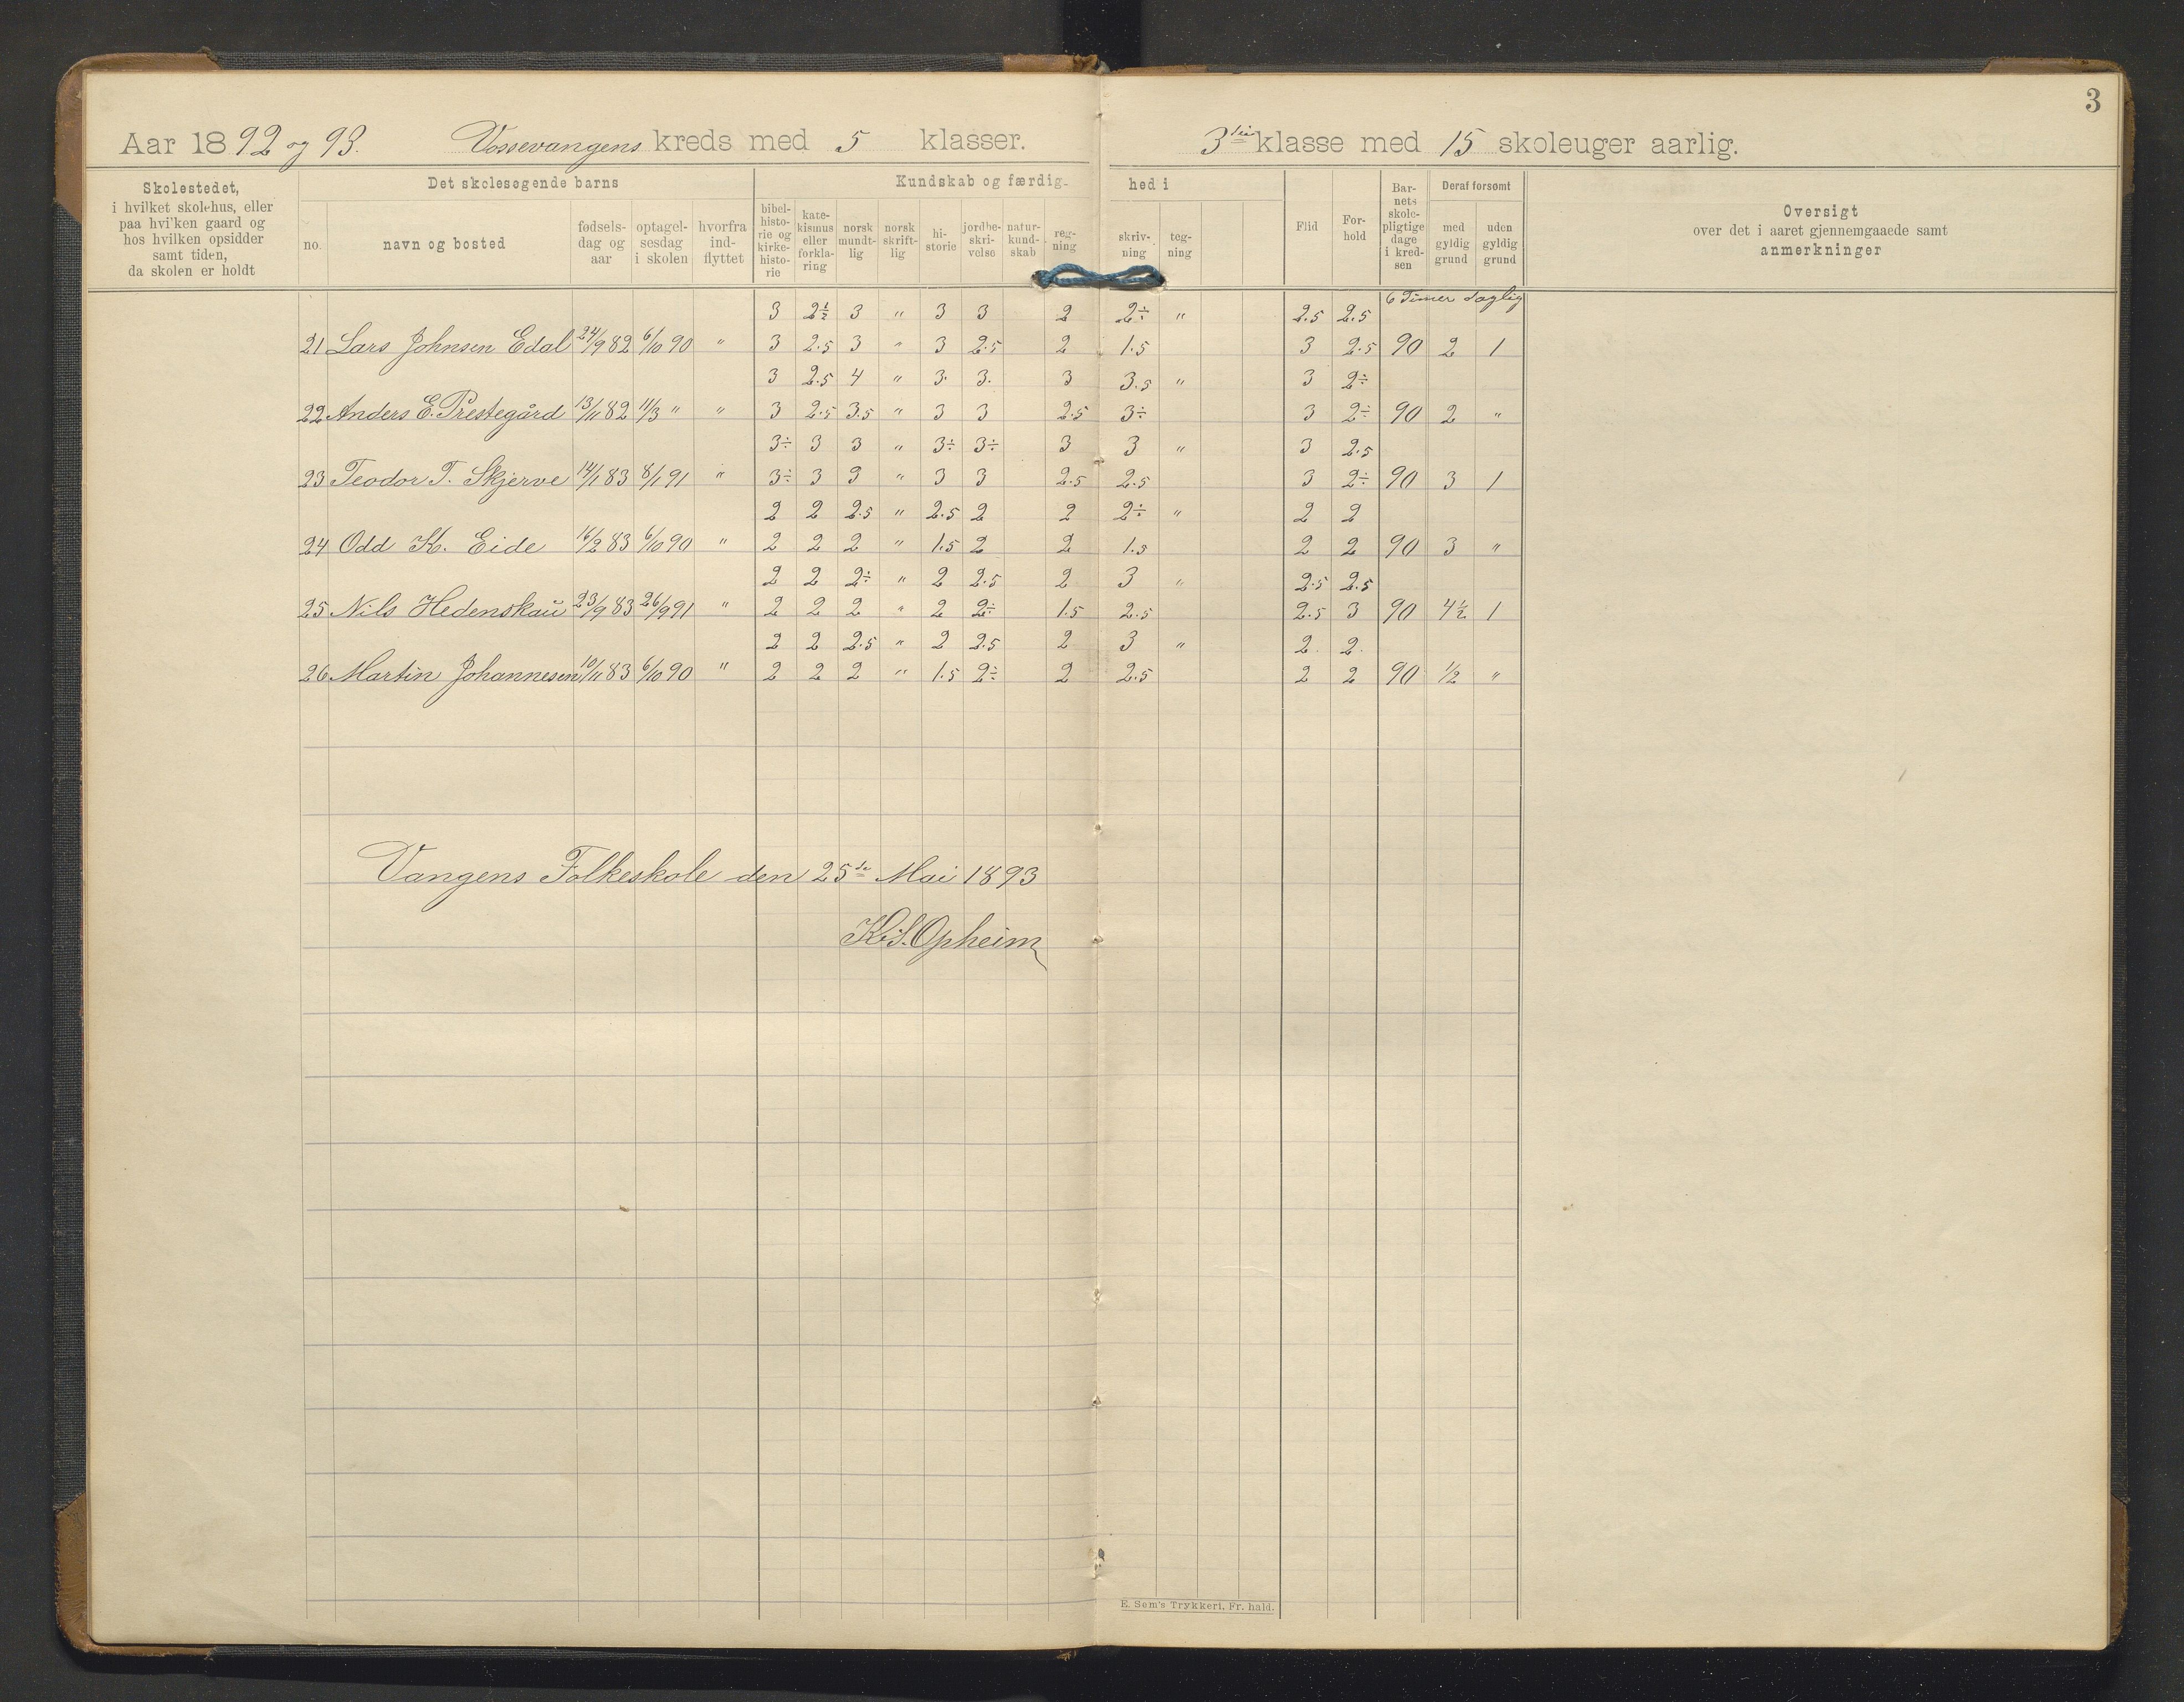 3
Aar 1892 og 93. Vossevangens kreds med 5 klasser. 3die klasse med 15 skoleuger aarlig.
Skolestedet, i hvilket skolehus, eller paa hvilken gaard og hos hvilken opsidder samt tiden, da skolen er holdt
Det skolesøgende barns
no. navn og bosted fødsels- dag og aar optagel- sesdag i skolen hvorfra ind- flyttet
Kundskab og færdig- hed i
bibel- histo- rie og kirke- histo- rie kate- kismus eller forkla- ring norsk mundt- lig norsk skrift- lig hi- storie jordbe- skri- velse natur- kund- skab reg- ning skriv- ning teg- ning
Flid For- hold Bar- nets skole- pligtige dage i kred- sen Deraf forsømt med gyldig grund uden gyldig grund
Oversigt
over det i aaret gjennemgaaede samt
anmerkninger
6 Timer daglig
3 2½ 3 " 3 3 2 2÷ " 2.5 2.5
21 Lars Johnsen Edal 24/9 82 6/10 90 " 3 2.5 3 " 3 2.5 2 1.5 3 2.5 90 2 1
3 2.5 4 " 3. 3. 3 3.5 " 3 2÷
22 Anders E. Prestegård 13/11 82 11/3 " " 3 2.5 3.5 " 3 3 2.5 3÷ 3 2÷ 90 2 "
3÷ 3 3 " 3÷ 3÷ 3 3 " 3 2.5
23 Teodor T. Skjerve 14/1 83 8/1 91 " 3÷ 3 3 " 3 3 2.5 2.5 3 2÷ 90 3 1
2 2 2.5 " 2.5 2 2 2÷ " 2 2
24 Odd K. Eide 16/2 83 6/10 90 " 2 2 2 " 1.5 2 2 1.5 2 2 90 3 "
2 2 2÷ " 2 2.5 2 3 " 2.5 2.5
25 Nils Hedenskau 23/9 83 26/9 91 " 2 2 2 " 2 2÷ 1.5 2.5 2.5 3 90 4½ 1
2 2 2.5 " 2 2.5 2 3 " 2. 2.
26 Martin Johannesen 10/11 83 6/10 90 " 2 2 2 " 1.5 2÷ 2 2.5 2 2 90 ½ "
Vangens Folkeskole den 25de Mai 1893
K. S. Opheim
E. Sem's Trykkeri, Fr. hald.